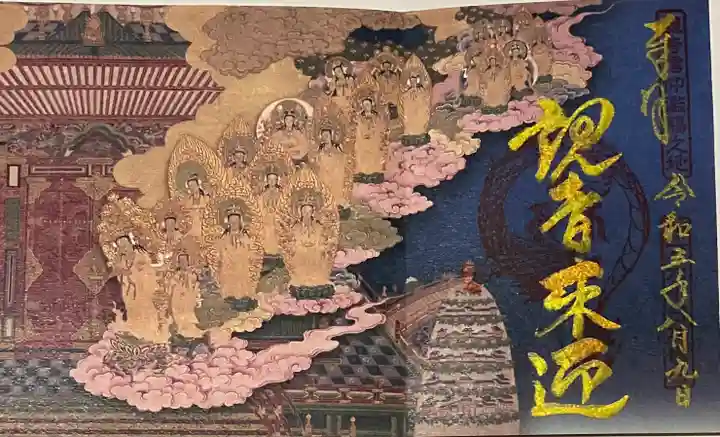 奉拝
観音来迎
令和五年八月九日